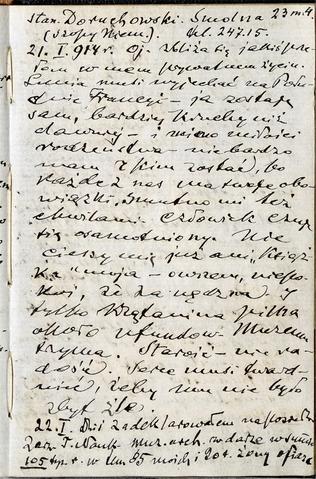 Stan. Doruchowski. Smolna 23 m. 4.
(szopy Niem.) tel. 247.15.
21. I. 914 r. Oj. zbliża się jakiś prze-
łom w mem prywatnem życiu.
musi wyjechać na Połu-
dnie Francyi - ja zostaję
sam, bardziej kruchy niż
dawniej - i mimo miłości
rodzeństwa - nie bardzo
mam z kim zostać, bo
każde z nas ma swoje obo-
wiązki. Smutno mi też
chwilami. Człowiek czuje
się osamotniony. Nie
cieszy mię już ani "Książ-
ka" moja - owszem, niepo-
koi, że za nędzna. I
tylko krzątanina
około ufundow. Muzeum
trzyma. Starość - nie ra-
dość. Serce musi tward-
nieć, żeby mu nie było
zbyt źle.
22. I. Dziś zadeklarowałem na
Tow. Nauk. muz. arch. w darze w sumie
105 tys. r. w tem 85 moich i 20 t. żony